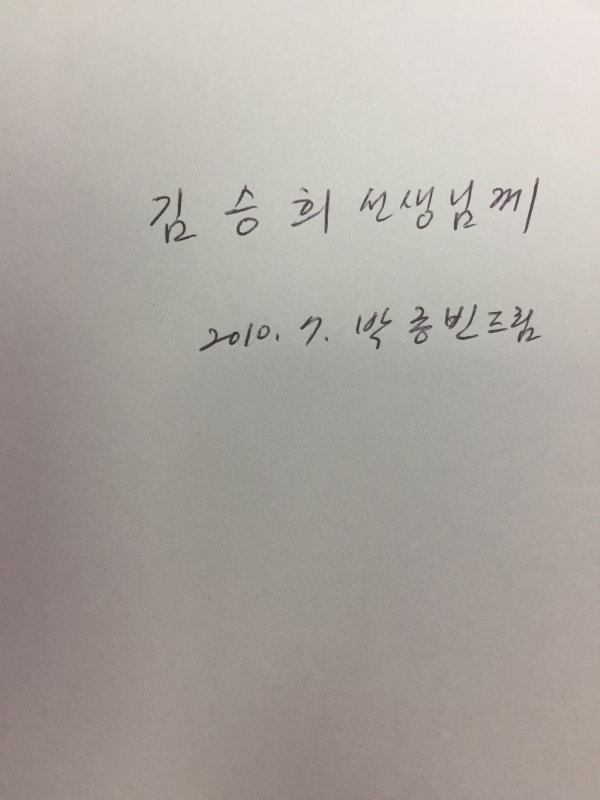 김 승 희 선생님께
2010. 7. 박종빈드림